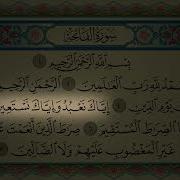 سُورَةُ الفَاتِحَةِ
بِسْمِ ٱللَّهِ ٱلرَّحْمَٰنِ ٱلرَّحِيمِ ١
لِلَّهِ رَبِّ ٱلْعَٰلَمِينَ ٢ ٱلرَّحْمَٰنِ ٱلرَّحِيمِ
يَوْمِ ٱلدِّينِ ٤ إِيَّاكَ نَعْبُدُ وَإِيَّاكَ نَسْتَعِينُ
ٱلصِّرَٰطَ ٱلْمُسْتَقِيمَ ٦ صِرَٰطَ ٱلَّذِينَ أَنْعَمْتَ
غَيْرِ ٱلْمَغْضُوبِ عَلَيْهِمْ وَلَا ٱلضَّآلِّينَ